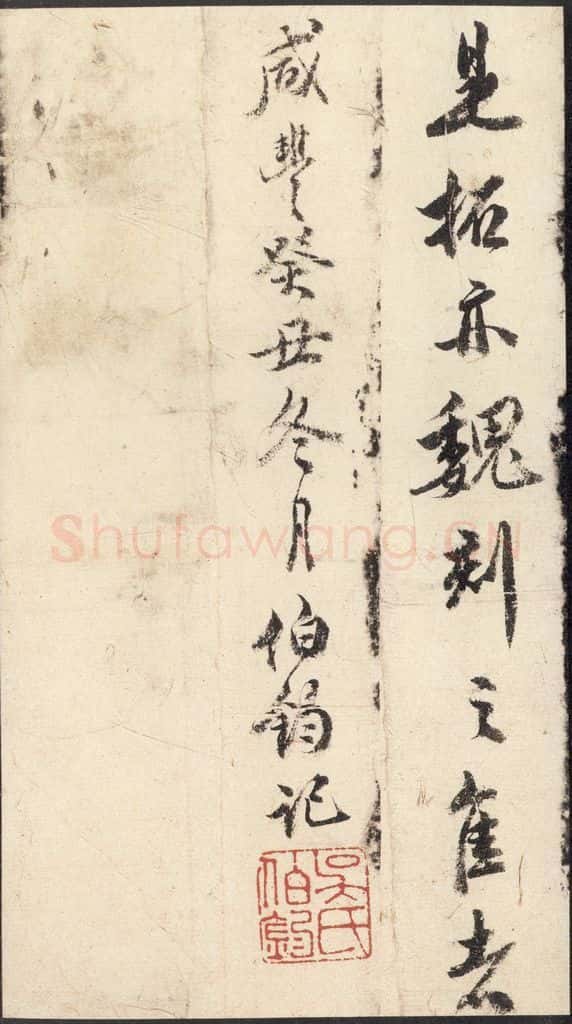 是拓亦魏刻之佳者
咸豐癸丑冬月伯鈞記
吳氏伯鈞
Shufawang.CN